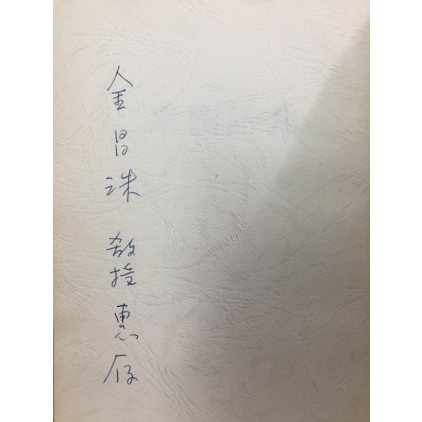 金昌洙 敎授 惠存